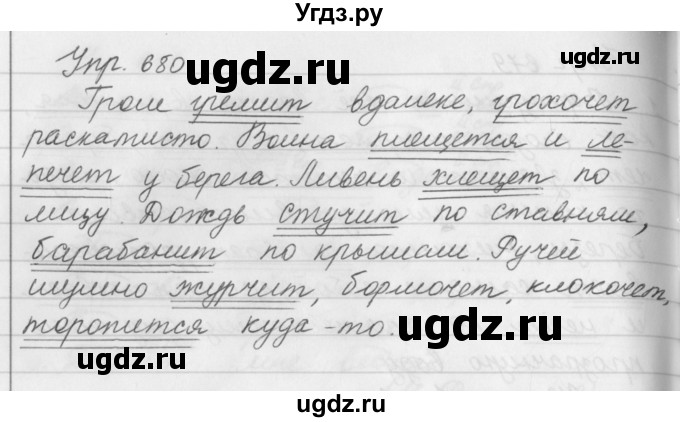 Угдз.ру
ugdz.ru
Упр. 680
ugdz.ru
Гром гремит вдалеке, грохочет
раскатисто. Волна плещется и ле-
печет у берега. Ливень хлещет по
лицу. Дождь стучит по ставням,
барабанит по крышам. Ручей
шумно журчит, бормочет, клокочет,
торопится куда-то.
ugdz.ru
ugdz.ru
ugdz.ru
ugdz.ru
ugdz.ru